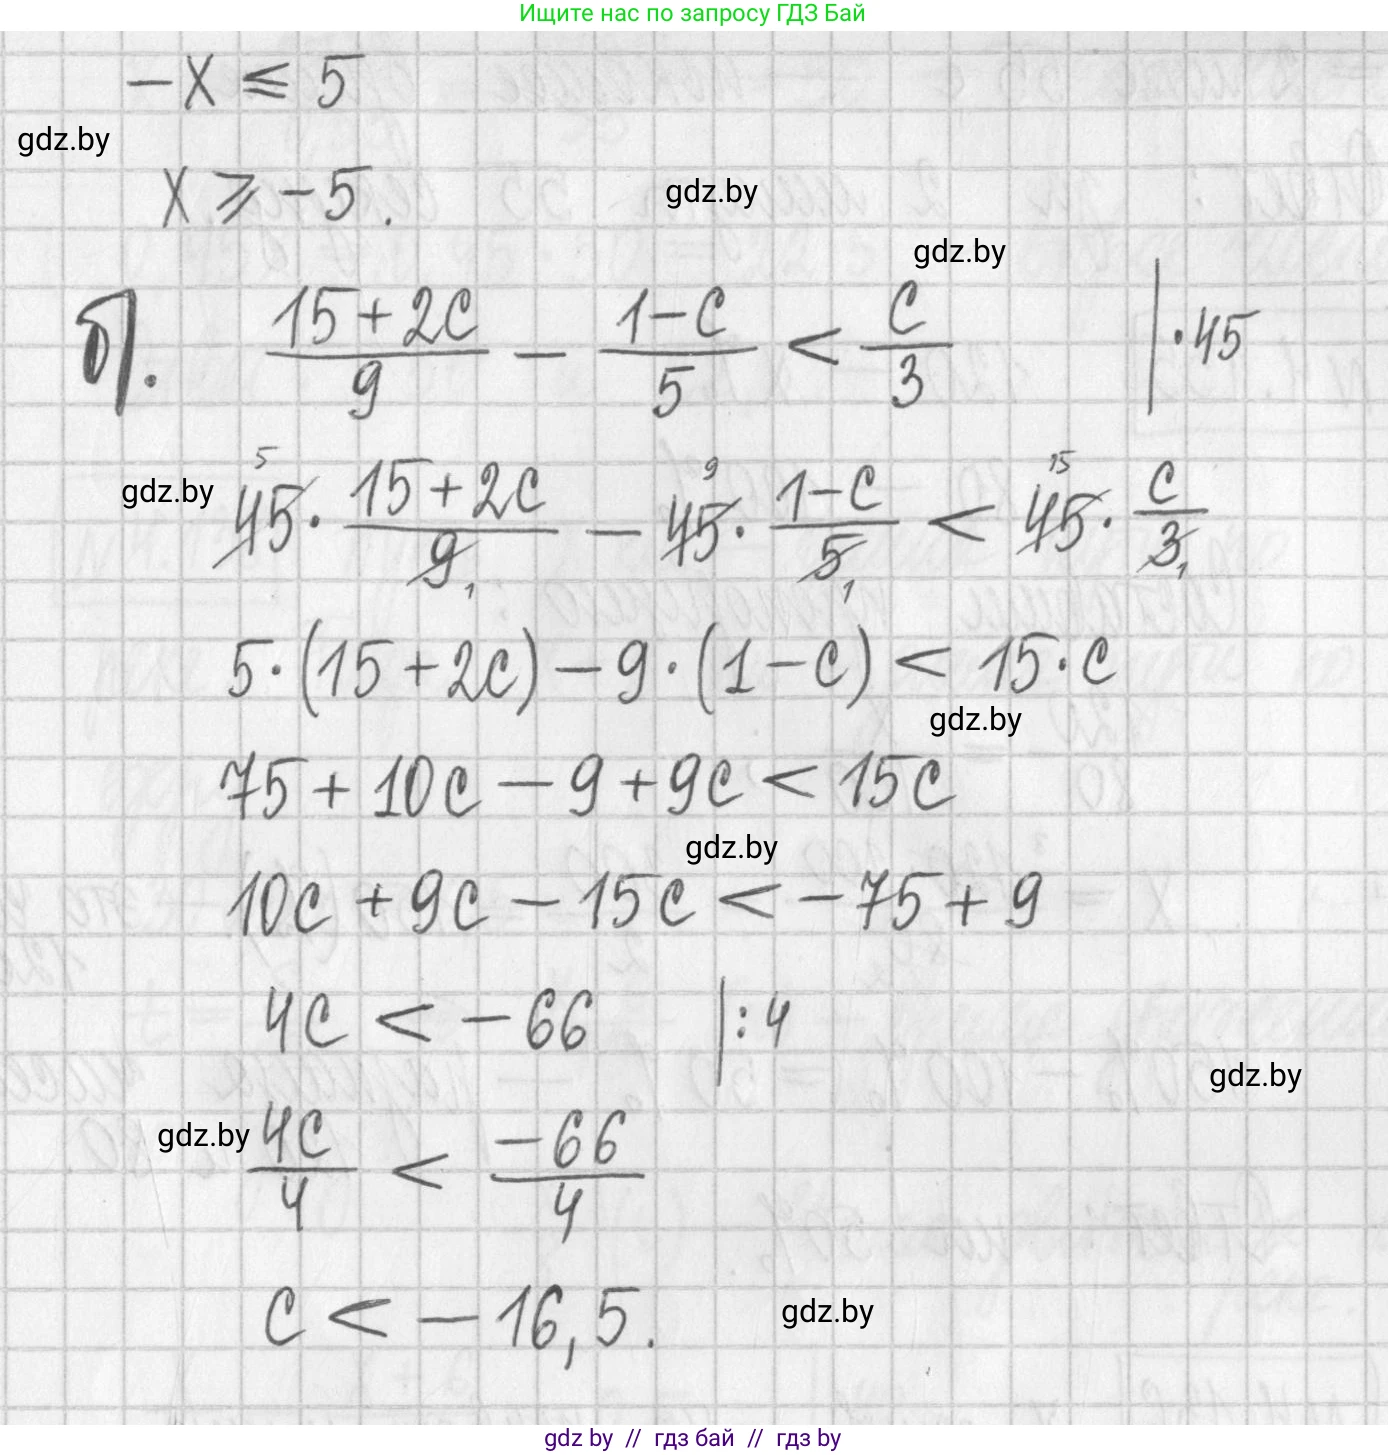 Ищите нас по запросу ГДЗ Бай
-x ⩽ 5
gdz.by
x ⩾ -5.
gdz.by
gdz.by
б). (15+2c)/9 - (1-c)/5 < c/3 |·45
gdz.by
45⁵·(15+2c)/9₁ - 45⁹·(1-c)/5₁ < 45¹⁵·c/3₁
5·(15+2c)-9·(1-c) < 15·c
gdz.by
75+10c-9+9c < 15c
gdz.by
10c+9c-15c < -75+9
4c < -66 |:4
gdz.by
gdz.by
4c/4 < -66/4
c < -16,5.
gdz.by
gdz by // гдз бай // гдз by